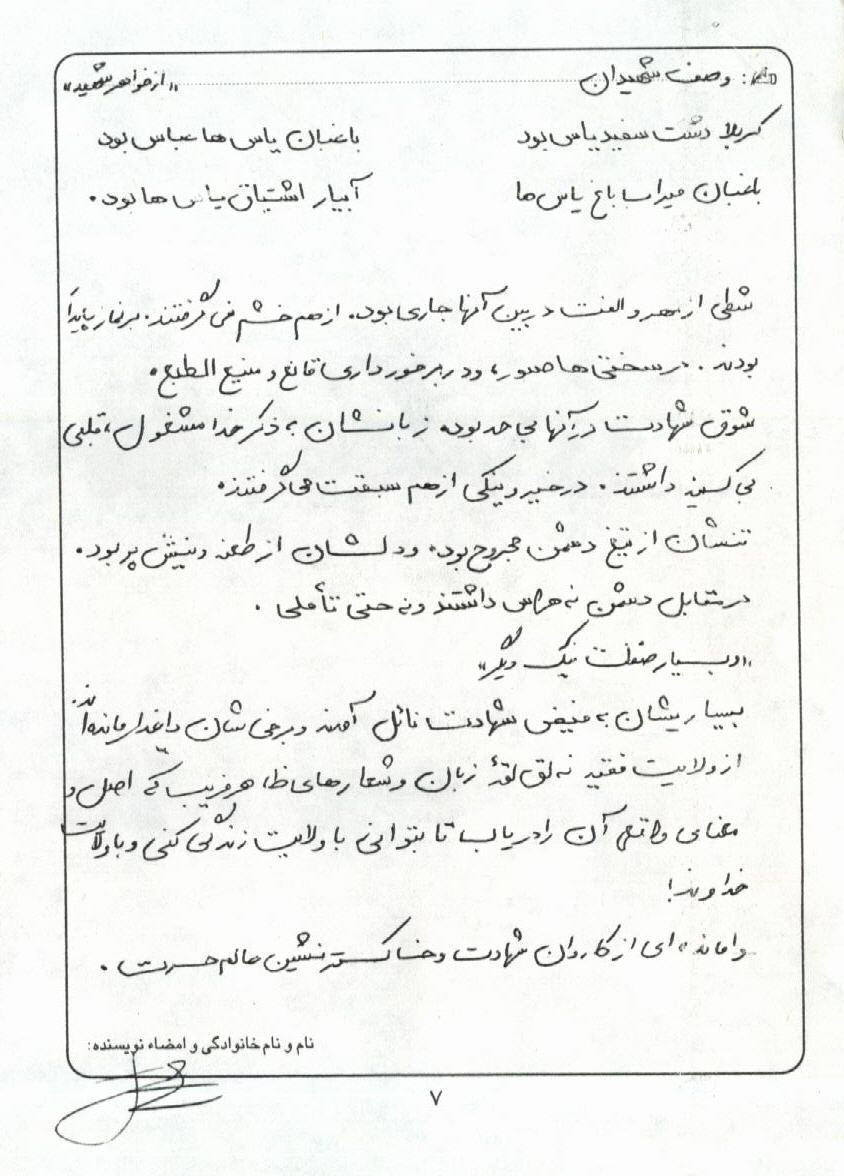 نام: وصف شهیدان «از خواهر شهید»
کربلا دشت سفید یاس بود باغبان یاس ها عباس بود
باغبان میراب باغ یاس ها آبیار اشتیاق یاس ها بود.
شطی از مهر و الفت در بین آنها جاری بود. از هم خشم می گرفتند. بر نماز پایدار
بودند. در سختی ها صبور، و در برخورداری قانع و منیع الطبع.
شوق شهادت در آنها بود. زبانشان به ذکر خدا مشغول، قلبی
بی کینه داشتند. در خیر و نیکی از هم سبقت می گرفتند.
تنشان از تیغ دشمن مجروح بود. و دلشان از طعنه و نیش پر بود.
در مقابل دشمن نه هراس داشتند و نه حتی تأملی.
«و بسیار صفات نیک دیگر»
بسیاریشان به فیض شهادت نائل آمدند و برخی شان داغدار مانده اند.
از ولایت فقیه نه لق لقهٔ زبان و شعارهای ظاهر فریب که اصل و
معنای واقعی آن را دریاب تا بتوانی با ولایت زندگی کنی و با ولایت
خداوند!
وامانده ای از کاروان شهادت و خاکستر نشین عالم حسرت.
نام و نام خانوادگی و امضاء نویسنده:
۷